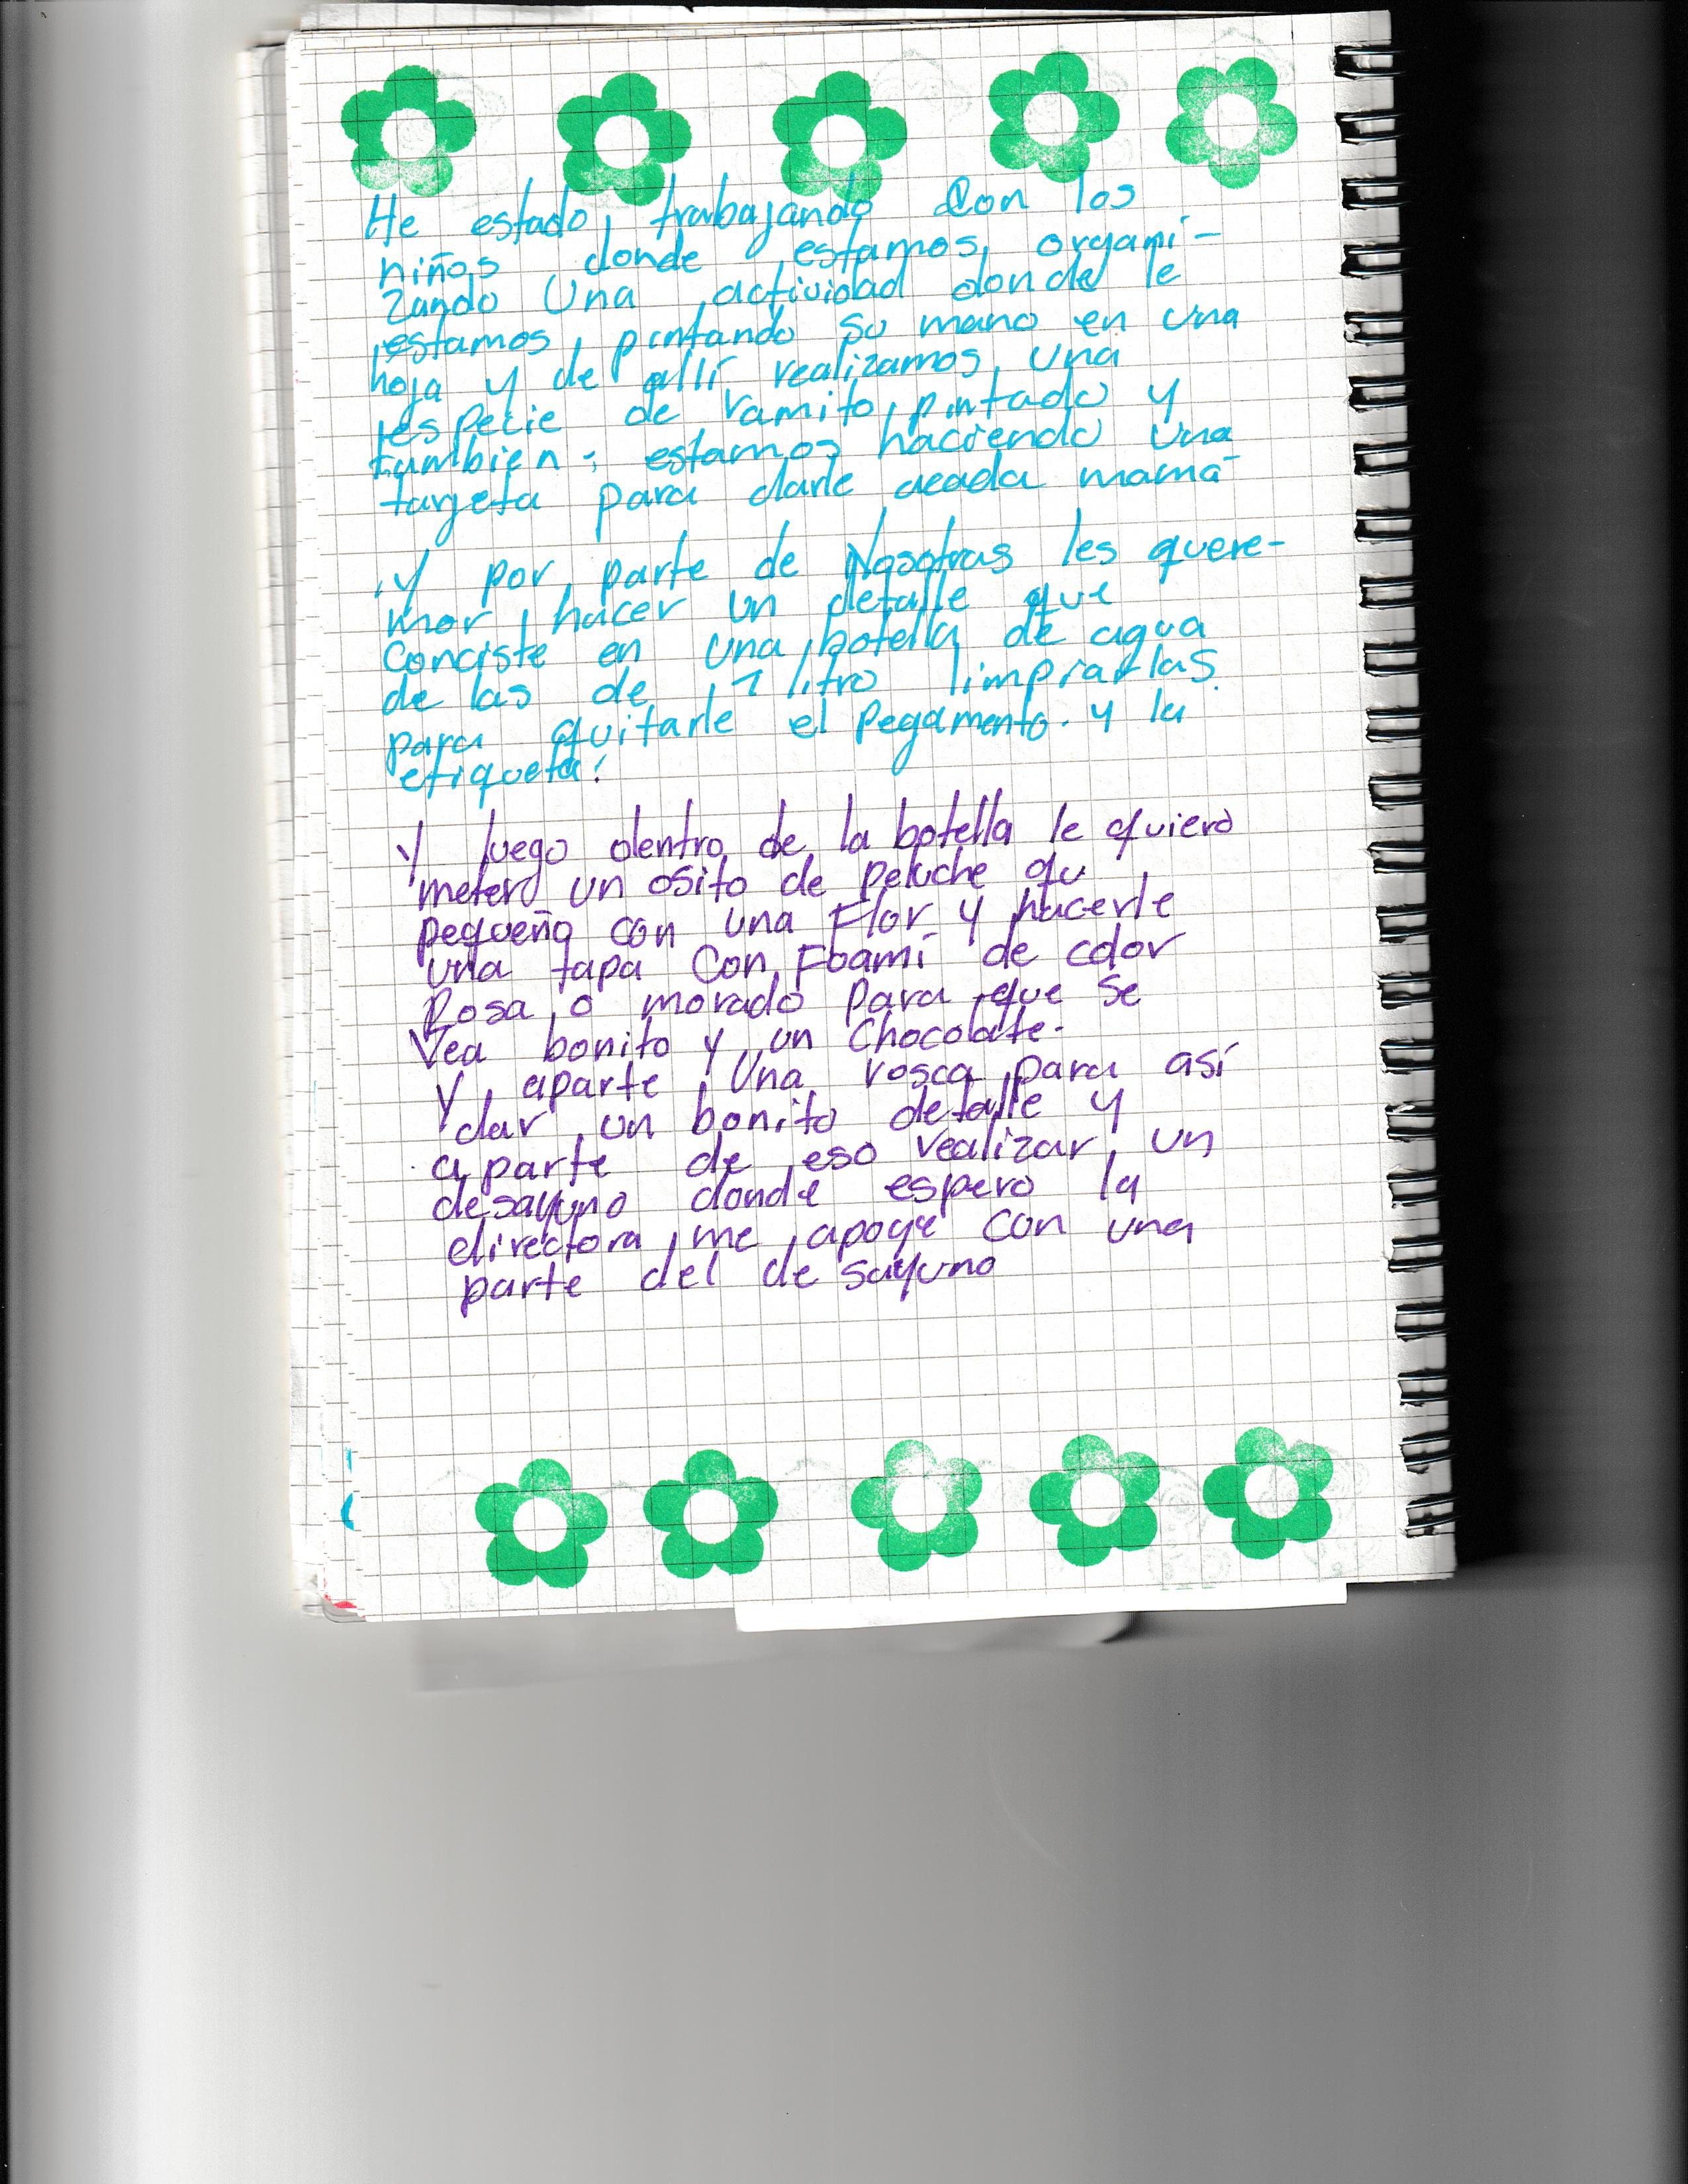 He estado trabajando con los
niños donde estamos organi-
zando una actividad donde le
estamos pintando su mano en una
hoja y de allí realizamos una
especie de ramito pintado y
tambien estamos haciendo una
targeta para darle acada mamá
Y por parte de Nosotras les quere-
mor hacer un detalle que
conciste en una botella de agua
de las de 1 litro limpiarlas
para quitarle el pegamento. y la
etiqueta.
Y luego dentro de la botella le quiero
meter un osito de peluche qu
pequeño con una Flor y hacerle
una tapa con Foami de color
Rosa o morado para que se
Vea bonito y un Chocolate.
Y aparte una rosca para así
dar un bonito detalle y
aparte de eso realizar un
desayuno donde espero la
directora me apoye con una
parte del desayuno